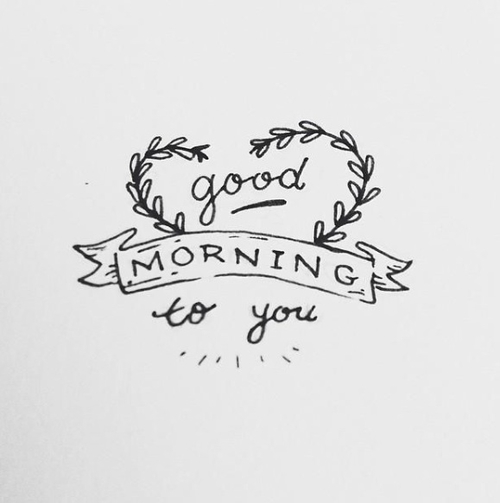 good
MORNING
to you